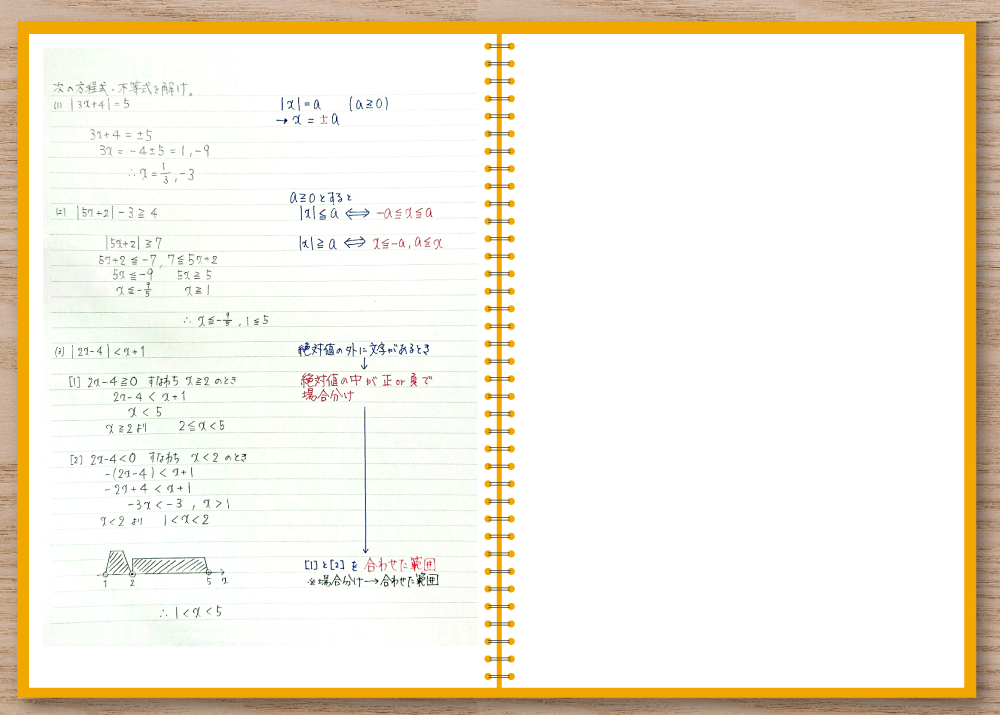 次の方程式・不等式を解け。
(1) |3x+4|=5
|x|=a (a≧0)
→ x = ±a
3x+4 = ±5
3x = -4±5 = 1, -9
∴ x = 1/3, -3
a≧0とすると
(2) |5x+2|-3≧4
|x|≦a ⇔ -a≦x≦a
|5x+2|≧7
|x|≧a ⇔ x≦-a, a≦x
5x+2≦-7, 7≦5x+2
5x≦-9 5x≧5
x≦-9/5 x≧1
∴ x≦-9/5, 1≦5
(3) |2x-4|<x+1
絶対値の外に文字があるとき
↓
[1] 2x-4≧0 すなわち x≧2 のとき
絶対値の中が正or負で
場合分け
2x-4 < x+1
x < 5
x≧2より 2≦x<5
[2] 2x-4<0 すなわち x<2 のとき
-(2x-4) < x+1
-2x+4 < x+1
-3x<-3 , x>1
x<2 より 1<x<2
1 2 5 x
[1]と[2]を合わせた範囲
※場合分け→合わせた範囲
∴ 1<x<5